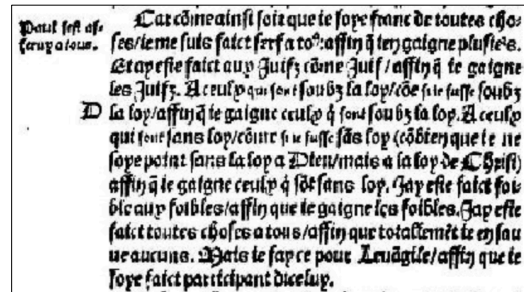 Paul sest as-
serup a tous.
Car cõme ainsi soit que ie soye franc de toutes cho-
ses/ ie me suis faict serf a toꝰ: affin q̃ ien gaigne plusieʳs.
Et ay este faict aux Juifz cõme Juif/ affin q̃ ie gaigne
les Juifz. A ceulx qui sont soubz la loy/ cõe si ie fusse soubz
D la loy/ affin q̃ ie gaigne ceulx q̃ sont soubz la loy. A ceulx
qui sont sans loy/ cõme si ie fusse sãs loy (cõbien que ie ne
soye point sans la loy a Dieu/ mais a la loy de Christ)
affin q̃ ie gaigne ceulx q̃ sõt sans loy. Jay este faict foi-
ble aux foibles/ affin que ie gaigne les foibles. Jay este
faict toutes choses a tous/ affin que totallemẽt ie en sau
ue aucuns. Mais ie fay ce pour Leuãgile/ affin que ie
soye faict participant diceluy.